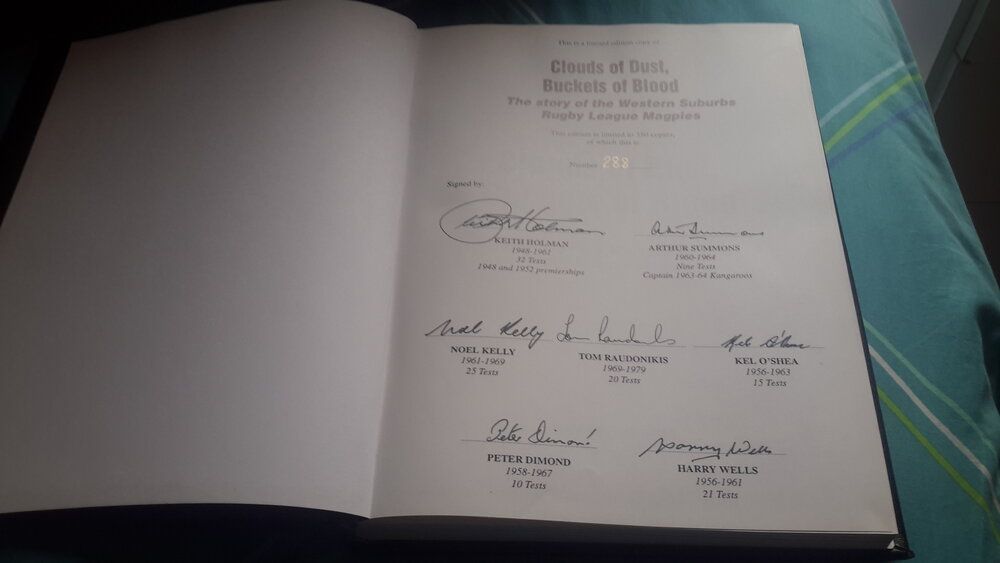 This is a limited edition copy of
Clouds of Dust,
Buckets of Blood
The story of the Western Suburbs
Rugby League Magpies
This edition is limited to 350 copies,
of which this is
Number 288
Signed by:
Keith Holman
KEITH HOLMAN
1948-1961
32 Tests
1948 and 1952 premierships
Arthur Summons
ARTHUR SUMMONS
1960-1964
Nine Tests
Captain 1963-64 Kangaroos
Noel Kelly
NOEL KELLY
1961-1969
25 Tests
Tom Raudonikis
TOM RAUDONIKIS
1969-1979
20 Tests
Kel O'Shea
KEL O'SHEA
1956-1963
15 Tests
Peter Dimond
PETER DIMOND
1958-1967
10 Tests
Harry Wells
HARRY WELLS
1956-1961
21 Tests